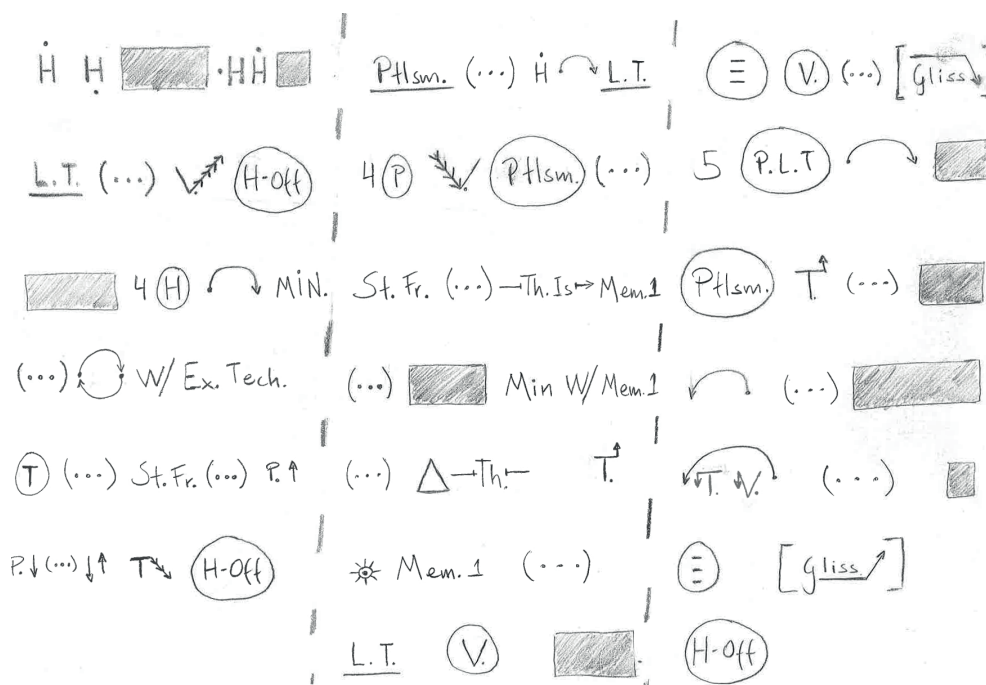 Ḣ Ḥ ·H Ḣ
L.T. (...) V. H-Off
4 H MiN.
(...) W/ Ex. Tech.
T (...) St. Fr. (...) P.↑
P.↓ (...) ↓↑ T H-Off
Ptlsm. (...) Ḣ L.T.
4 P V. Ptlsm. (...)
St. Fr. (...) Th. Is Mem.1
(...) Min W/ Mem.1
(...) △ Th. T.
Mem.1 (...)
L.T. V.
Ξ V. (...) [Gliss]
5 P.L.T
Ptlsm. T. (...)
(...)
↓↓T. ↓V. (...)
Ξ [Gliss.]
H-Off